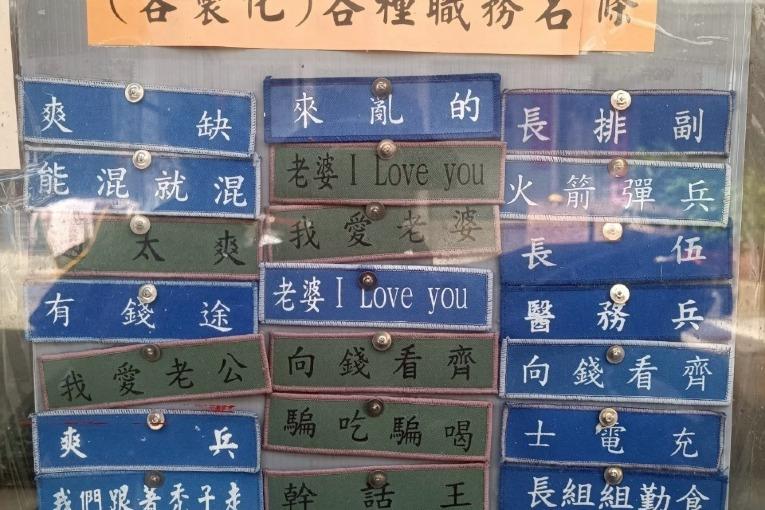 (客製化)各種職務名條
爽缺
能混就混
太爽
有錢途
我愛老公
爽兵
我們跟著禿子走
來亂的
老婆 I Love you
我愛老婆
老婆 I Love you
向錢看齊
騙吃騙喝
幹話王
長排副
火箭彈兵
長伍
醫務兵
向錢看齊
士電充
長組組勤食